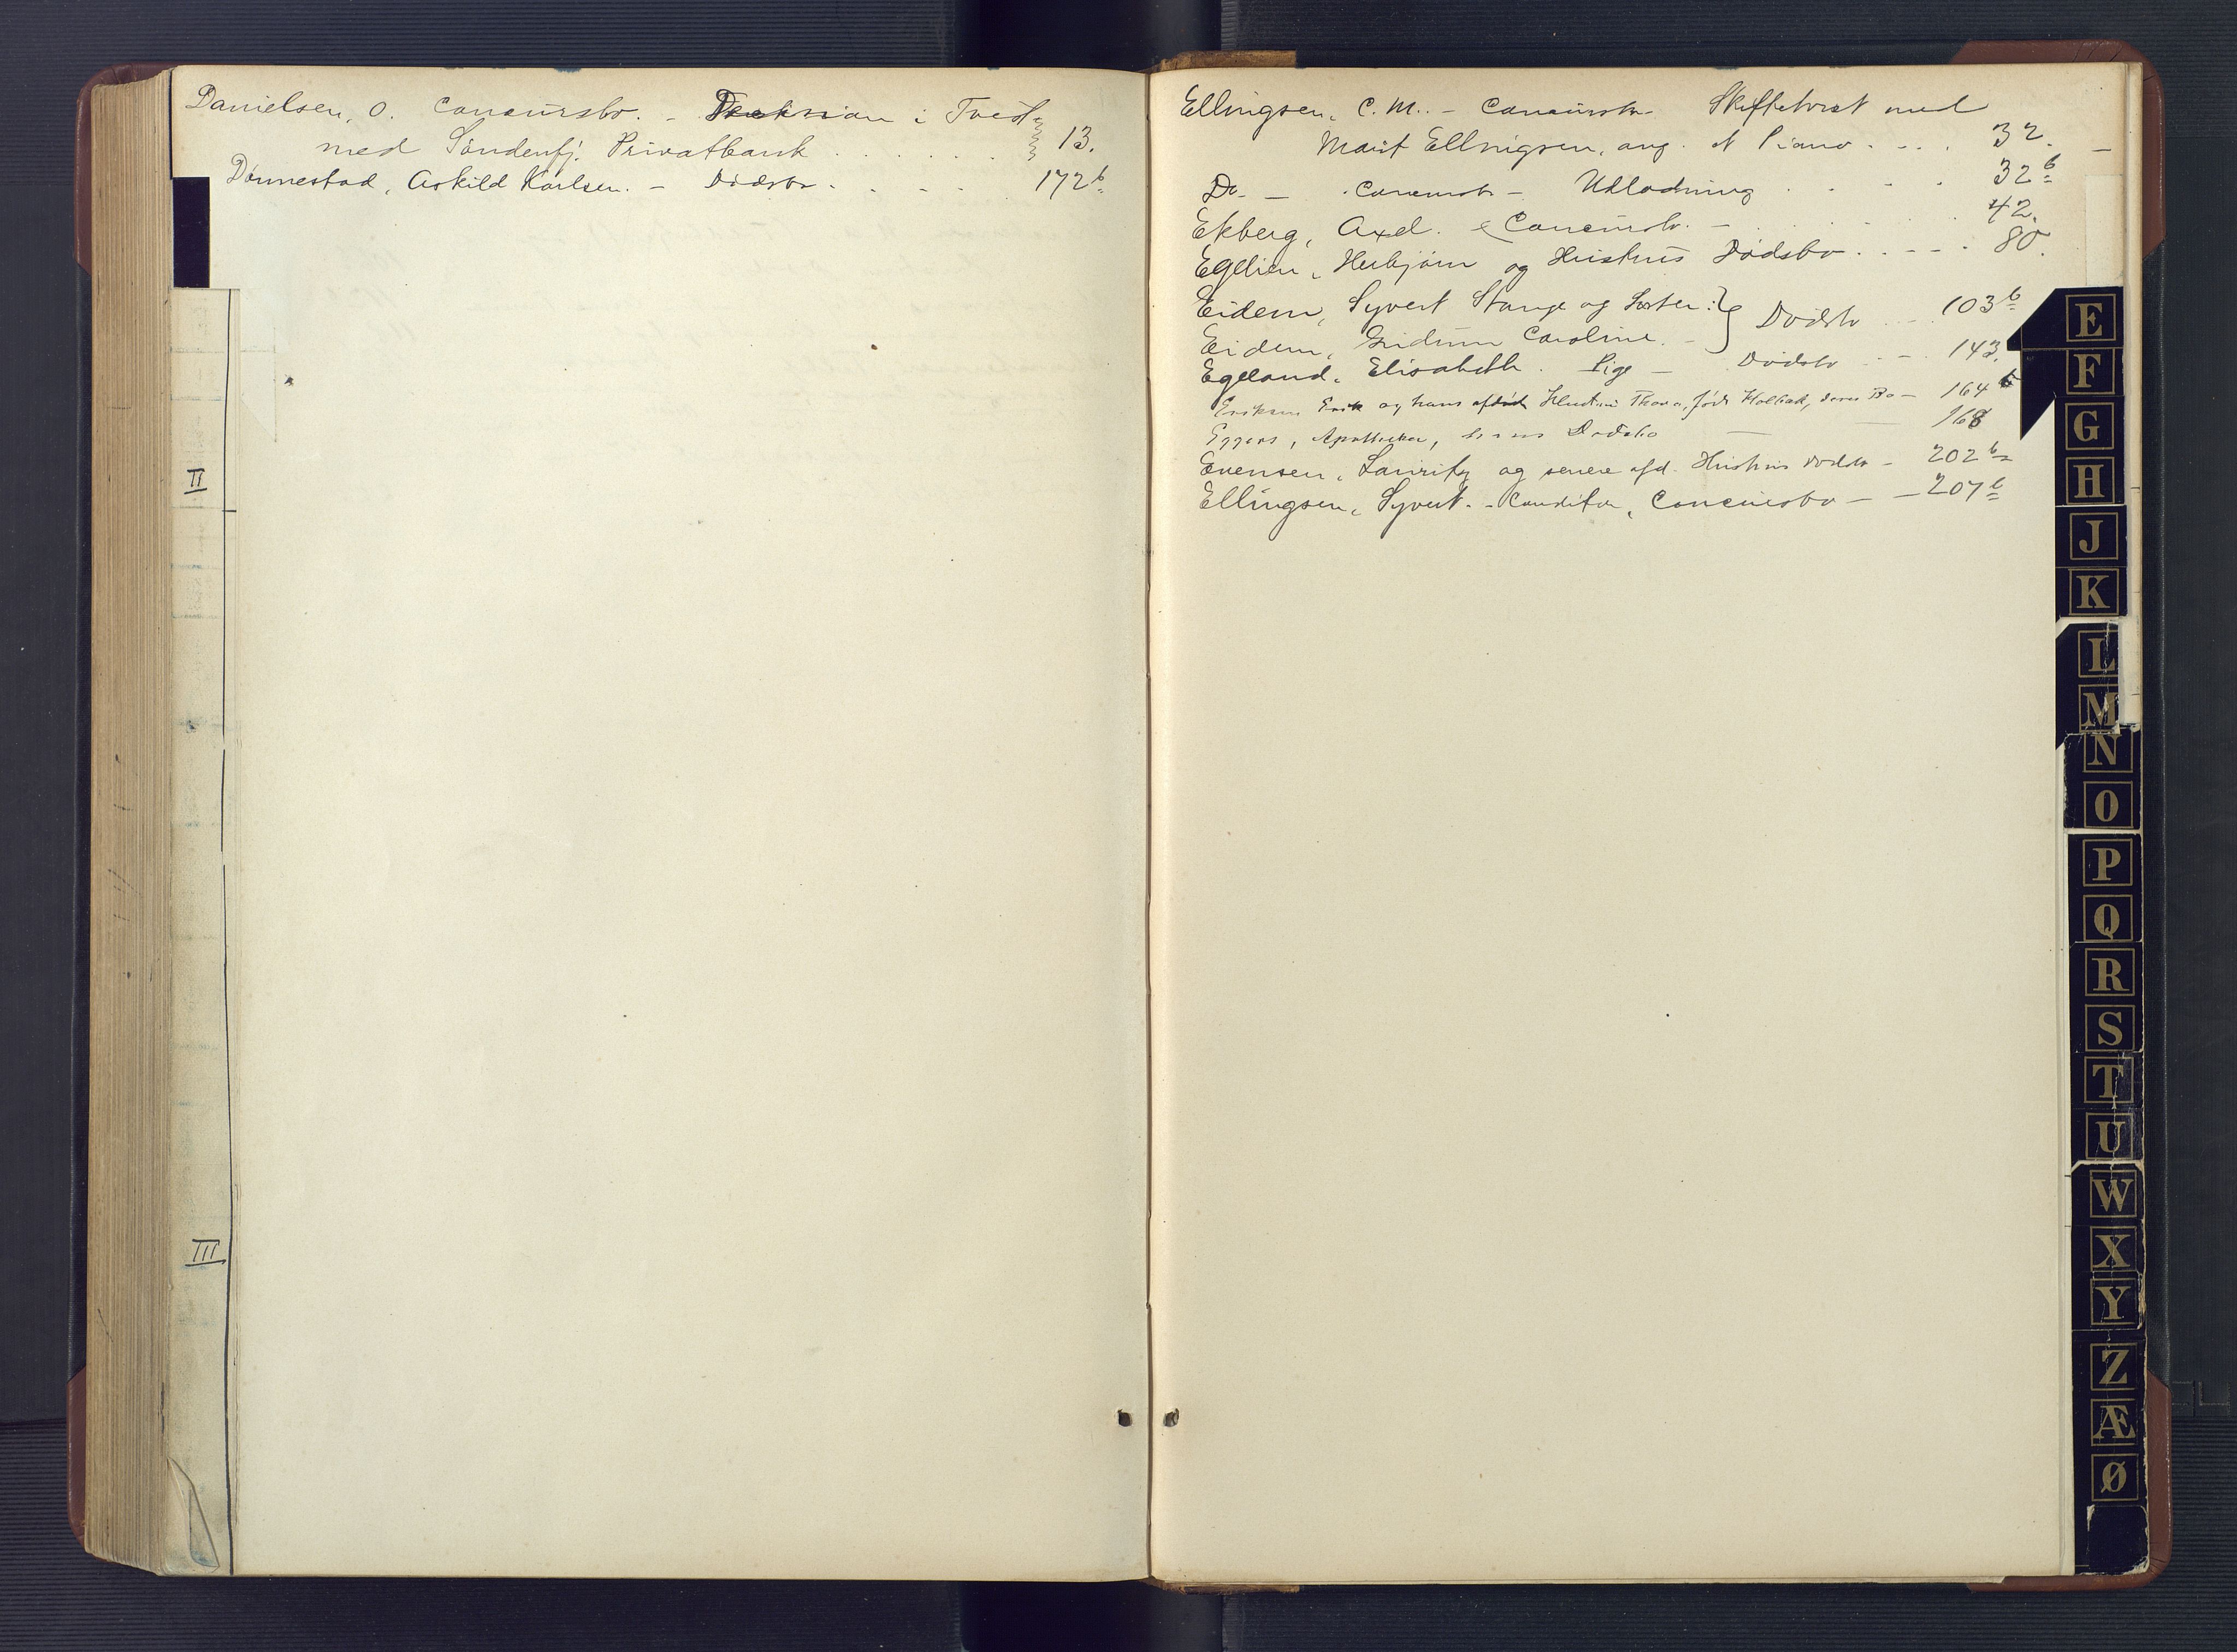 Danielsen, O. Concursbo. - i Tvist
med Söndenfj. Privatbank . . . . . . 13.
Dönnestad, Askild Karlsen. - Dödsbo . . . . 172b
II
III
Ellingsen, C. M. - Concursbo - Skiftetvist med
Marit Ellingsen, ang. et Piano . . . 32.
Do - Concursbo - Udlodning . . . . 32b
Ekberg, Axel. Concursbo. - . . . . 42.
Egelien, Herbjörn og Hustrus Dödsbo . . . . 80.
Eidem, Syvert Stange og Söster :
Eidem, Caroline. - } Dödsbo . . . 103b
Egeland, Elisabeth. Pige - Dödsbo . . . 143.
Eriksen Erik og hans afdöde Hustru Thora, född Holbæk, deres Bo - 164b
Eggers, Apotheker, hans Dödsbo — — 168
Evensen, Lauritz og senere afd. Hustrus Dödsbo - 202b
Ellingsen, Syvert. - Conditor, Concursbo — — 207b
E
F
G
H
J
K
L
M
N
O
P
Q
R
S
T
U
W
X
Y
Z
Æ
Ø